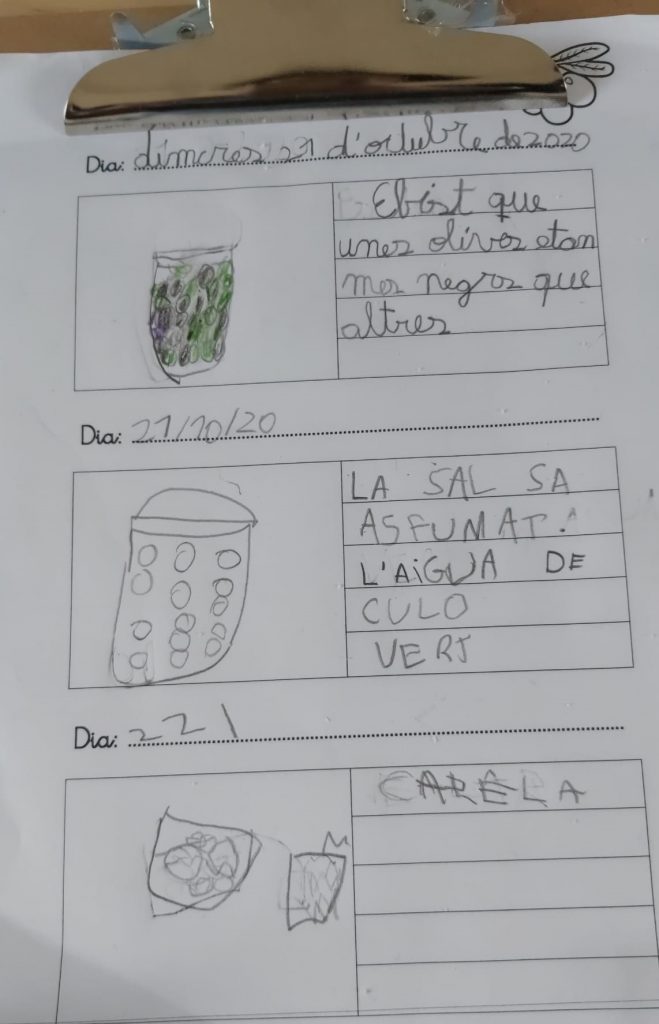 Dia: dimcres 21 d'octubre de 2020
Ebist que
unes olives etan
mes negres que
altres
Dia: 21/10/20
LA SAL SA
ASFUMAT.
L'AiGUA DE
CULO
VERT
Dia: 221